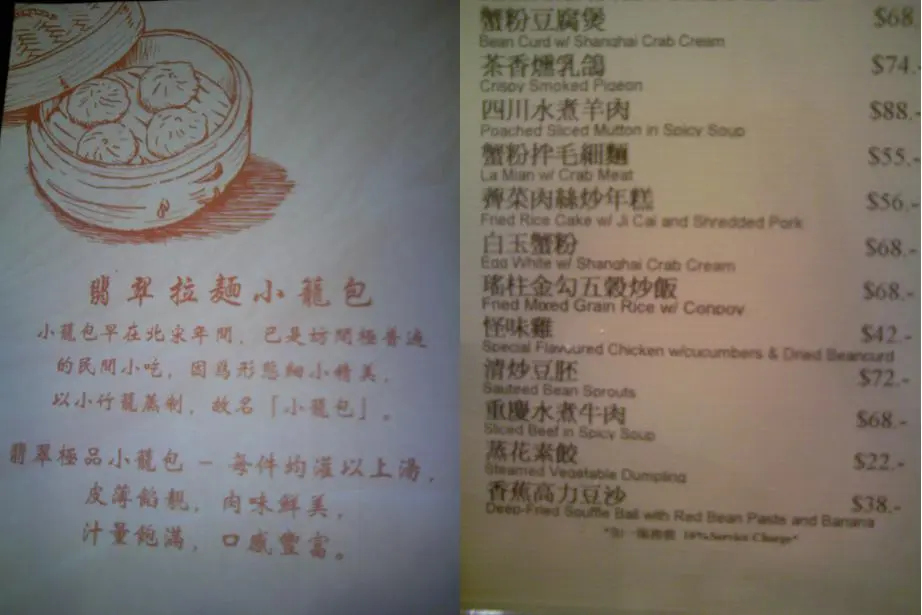 翡翠拉麵小籠包
小籠包早在北宋年間，已是坊間極普遍
的民間小吃，因爲形態細小精美，
以小竹籠蒸制，故名「小籠包」。
翡翠極品小籠包 - 每件均灌以上湯，
皮薄餡靚，肉味鮮美，
汁量飽滿，口感豐富。
蟹粉豆腐煲 $68
Bean Curd w/ Shanghai Crab Cream
茶香燻乳鴿 $74.-
Crispy Smoked Pigeon
四川水煮羊肉 $88.-
Poached Sliced Mutton in Spicy Soup
蟹粉拌毛細麵 $55.-
La Mian w/ Crab Meat
薺菜肉絲炒年糕 $56.-
Fried Rice Cake w/ Ji Cai and Shredded Pork
白玉蟹粉 $68.-
Egg White w/ Shanghai Crab Cream
瑤柱金勾五穀炒飯 $68.-
Fried Mixed Grain Rice w/ Conpoy
怪味雞 $42.-
Special Flavoured Chicken w/cucumbers & Dried Beancurd
清炒豆胚 $72.-
Sauteed Bean Sprouts
重慶水煮牛肉 $68.-
Sliced Beef in Spicy Soup
蒸花素餃 $22.-
Steamed Vegetable Dumpling
香蕉高力豆沙 $38.-
Deep-Fried Souffle Ball with Red Bean Paste and Banana
*加一服務費 10%Service Charge*